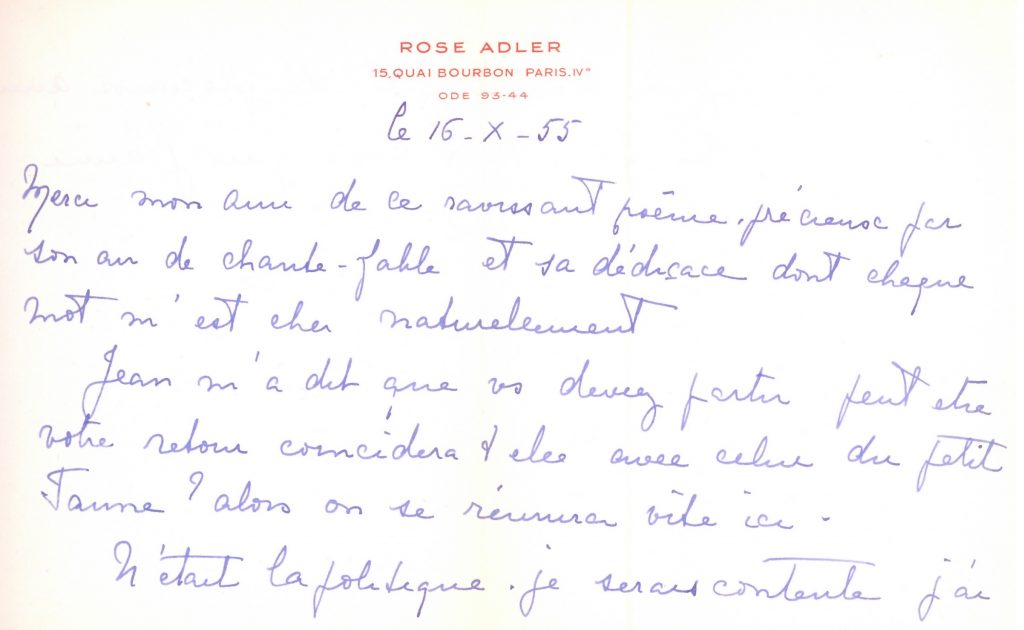 ROSE ADLER
15, QUAI BOURBON PARIS. IVᵉ
ODE 93-44
le 16 - X - 55
Merci mon ami de ce ravissant poême, précieux par
son air de chante-fable et sa dédicace dont chaque
mot m'est cher naturellement
Jean m'a dit que vs devez partir peut etre
votre retour coïncidera t'elle avec celui du petit
Jaune ? alors on se réunira vite ici .
N'était la politique . je serais contente j'ai